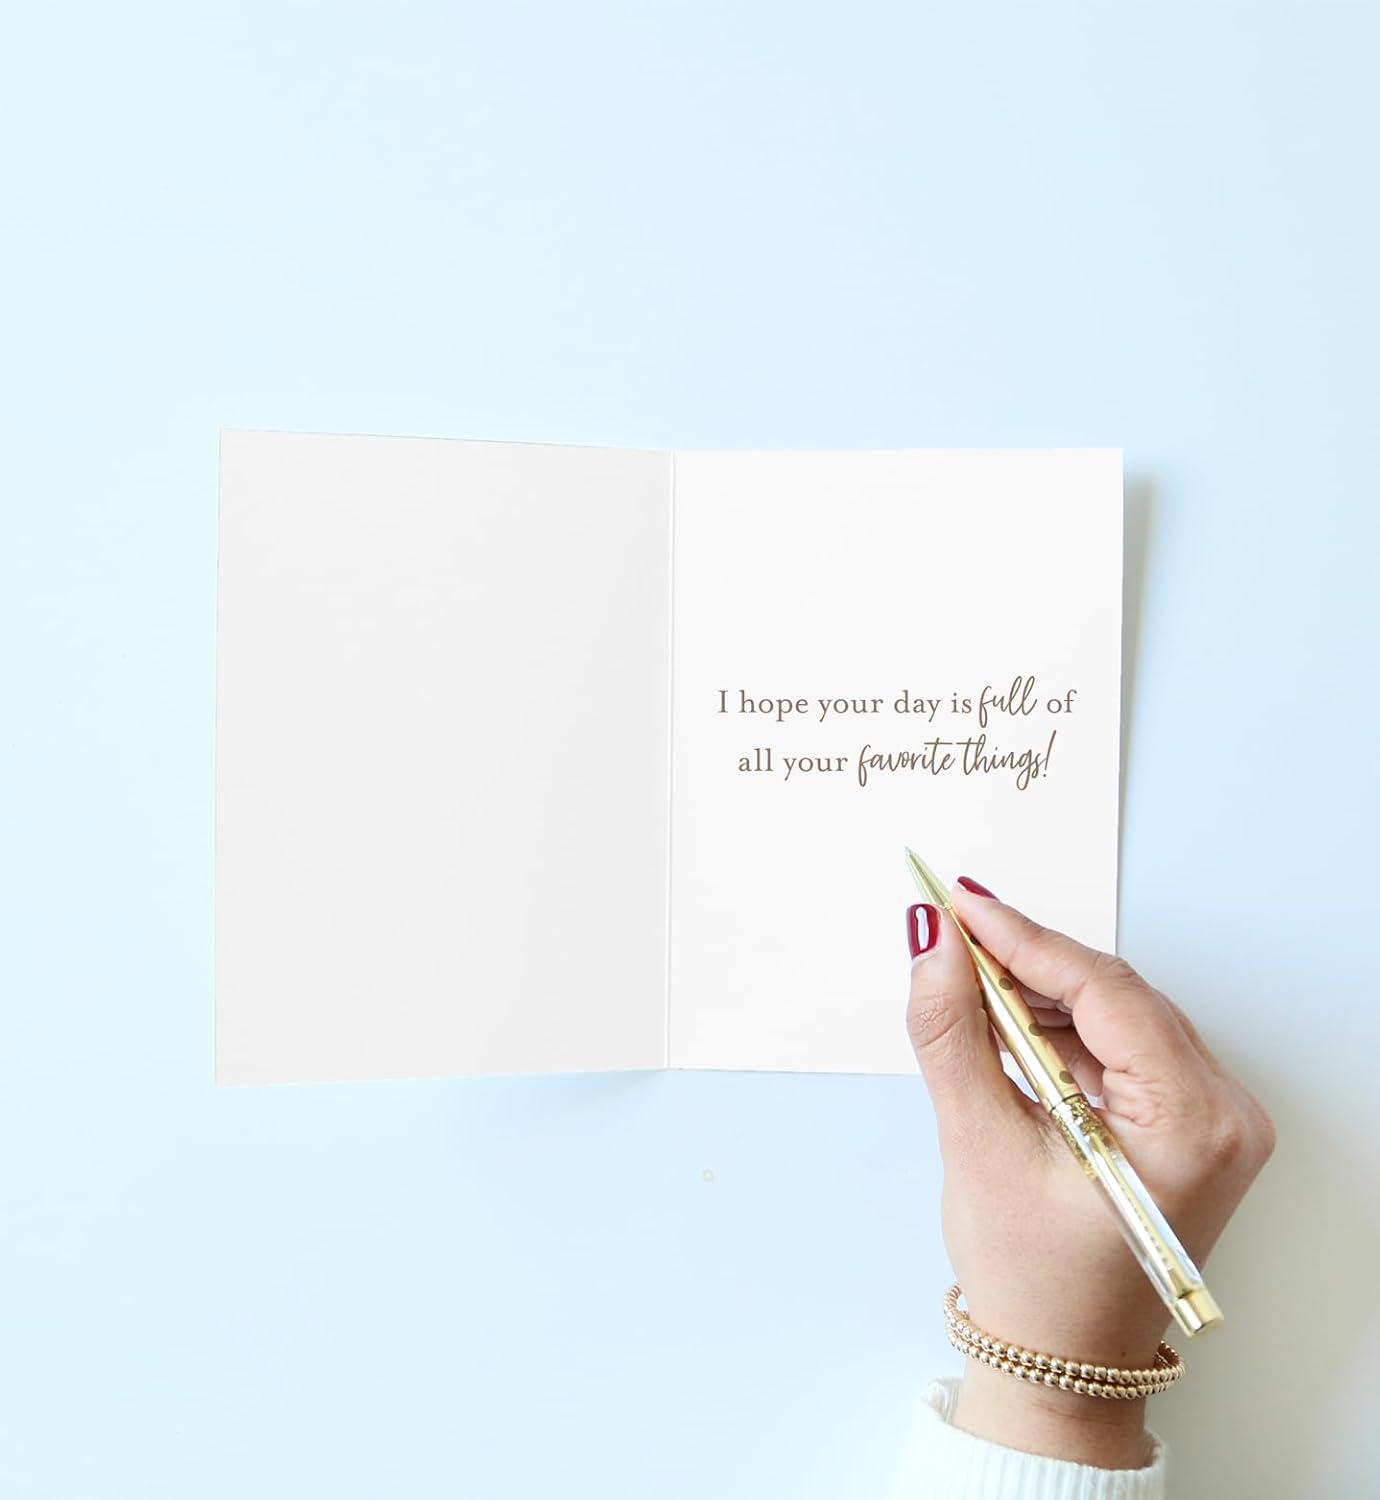 I hope your day is full of
all your favorite things!